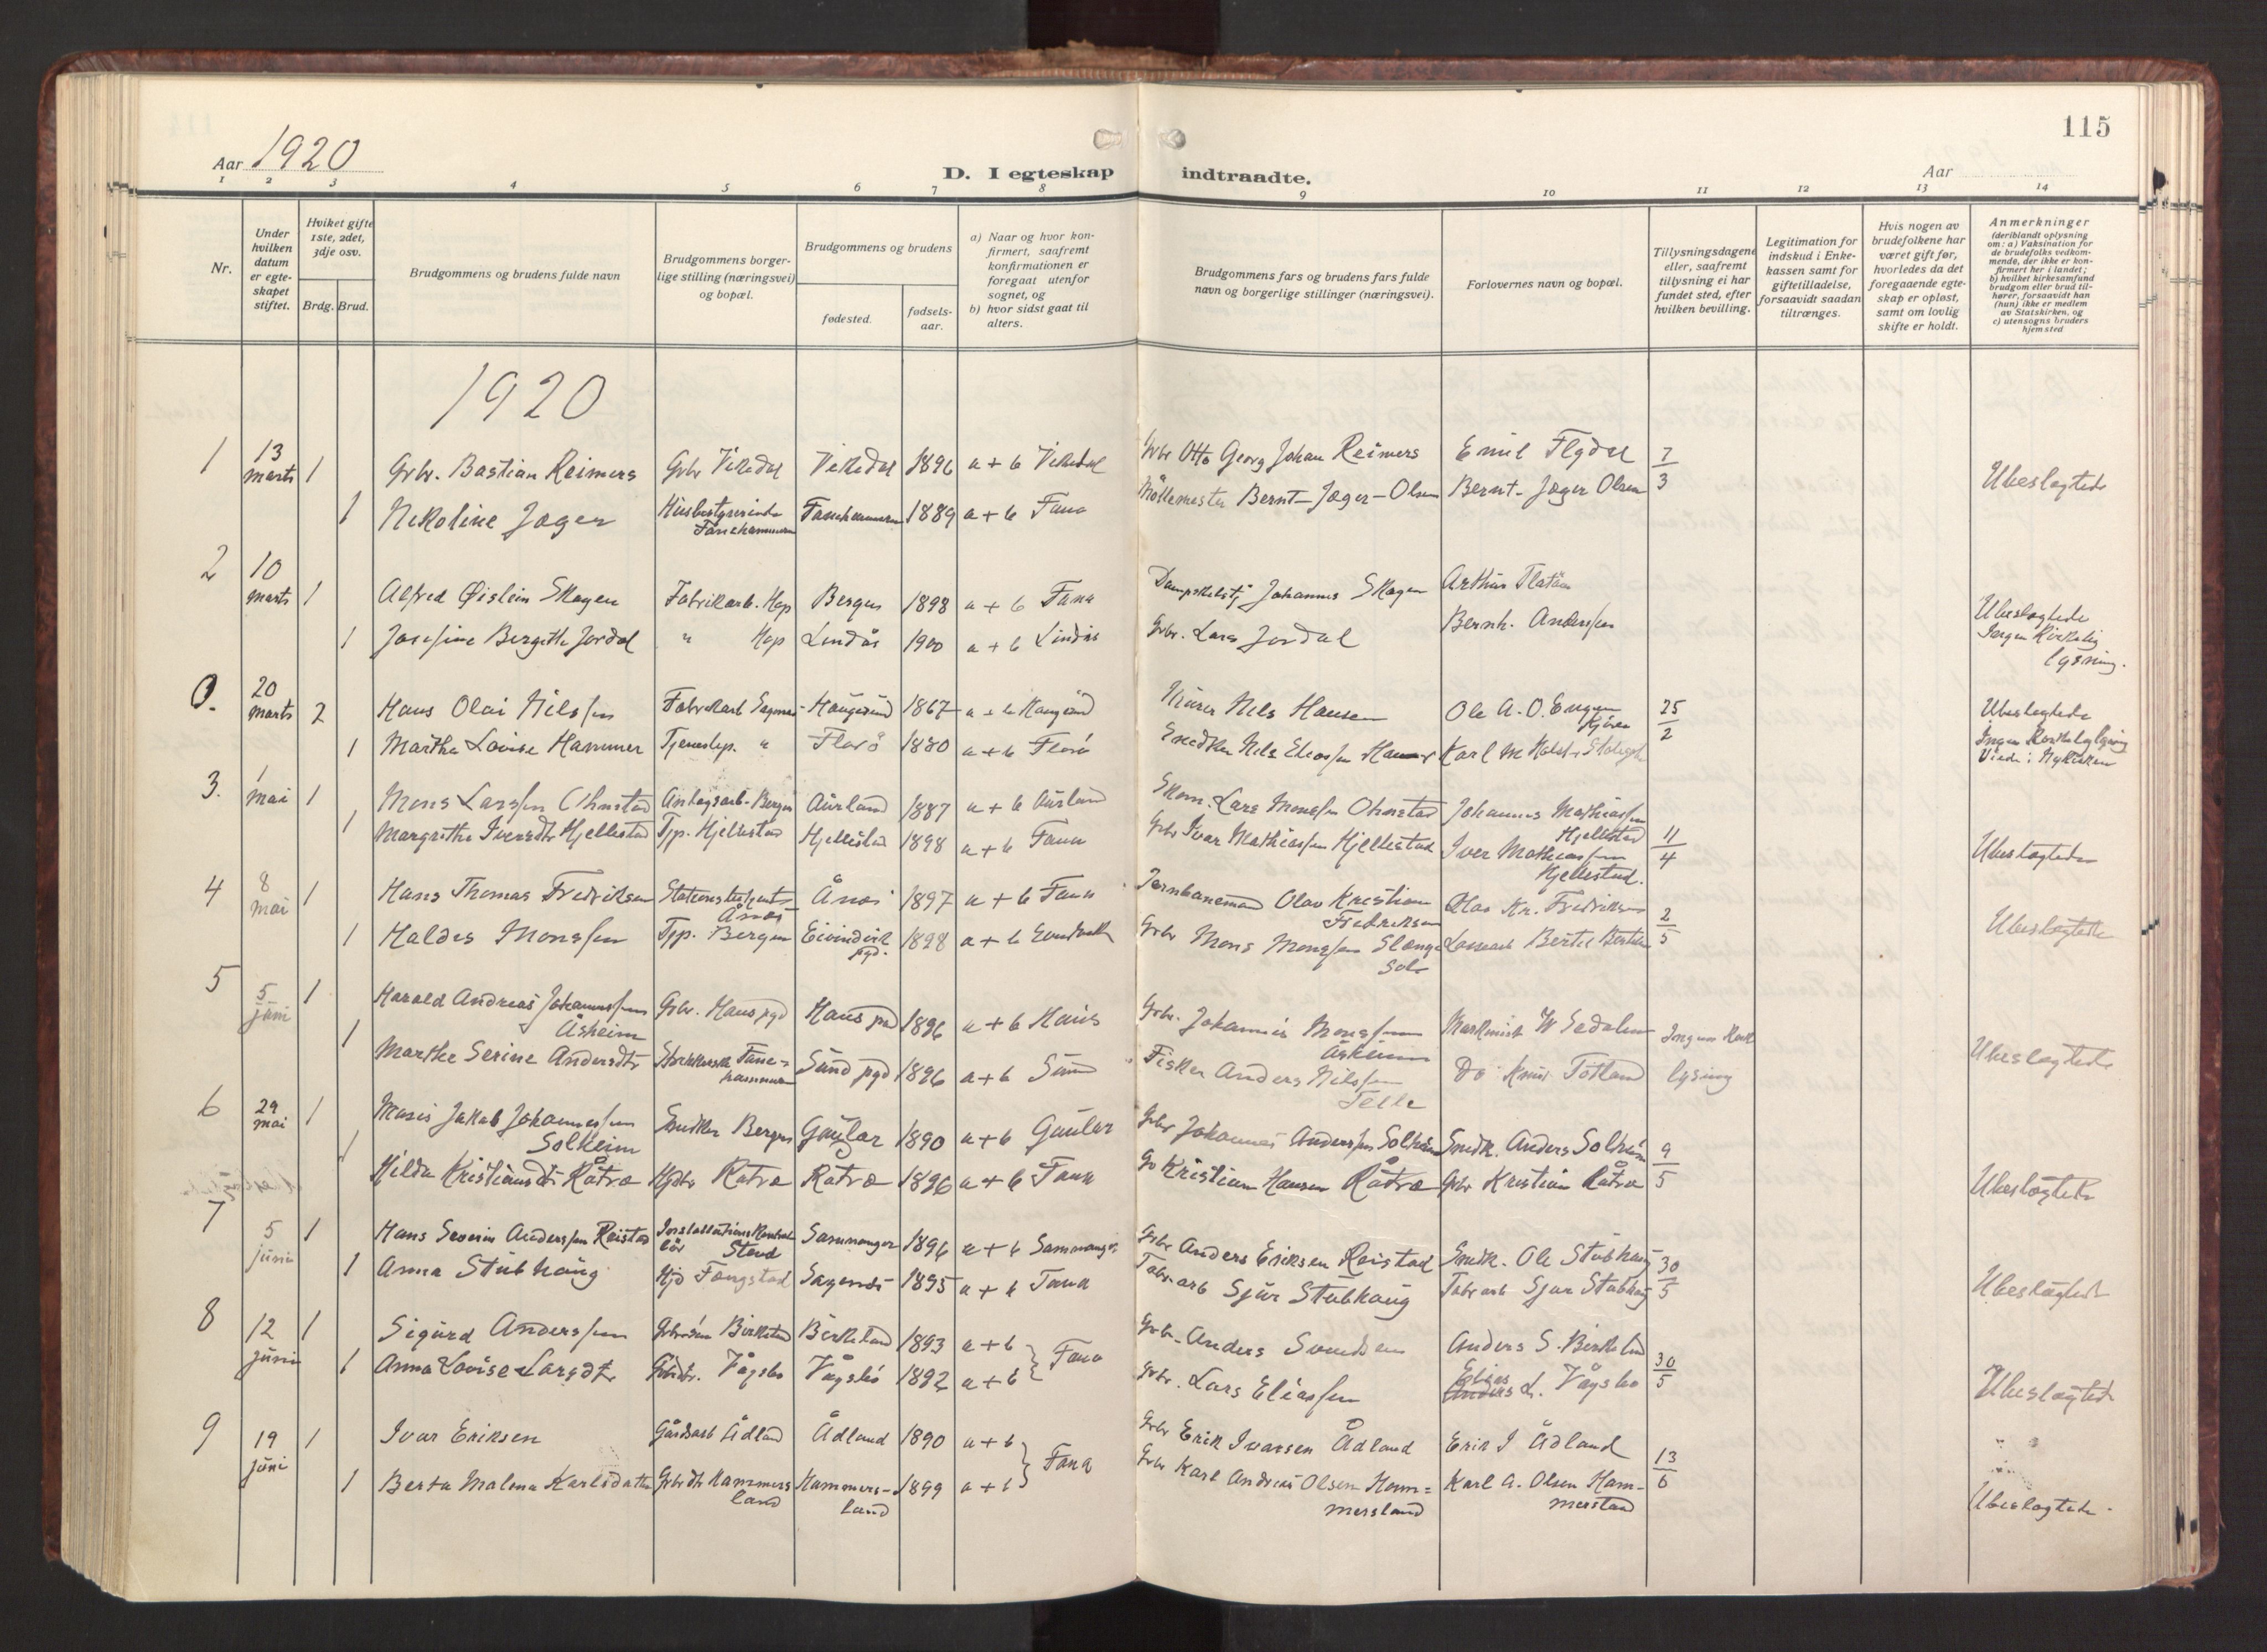 115
Aar 1920
D. I egteskap indtraadte.
Aar
1 2 3 4 5 6 7 8 9 10 11 12 13 14
Nr.
Under hvilken datum er egteskapet stiftet.
Hviket gifte 1ste, 2det, 3dje osv.
Brdg. Brud.
Brudgommens og brudens fulde navn
Brudgommens borgerlige stilling (næringsvei) og bopæl.
Brudgommens og brudens
fødested.
fødselsaar.
a) Naar og hvor konfirmert, saafremt konfirmationen er foregaat utenfor sognet, og
b) hvor sidst gaat til alters.
Brudgommens fars og brudens fars fulde navn og borgerlige stillinger (næringsvei).
Forlovernes navn og bopæl.
Tillysningsdagene eller, saafremt tillysning ei har fundet sted, efter hvilken bevilling.
Legitimation for indskud i Enkekassen samt for giftetilladelse, forsaavidt saadan tiltrænges.
Hvis nogen av brudefolkene har været gift før, hvorledes da det foregaaende egteskap er opløst, samt om lovlig skifte er holdt.
Anmerkninger
(deriblandt oplysning om: a) Vaksination for de brudefolks vedkommende, der ikke er konfirmert her i landet;
b) hvilket kirkesamfund brudgom eller brud tilhører, forsaavidt han (hun) ikke er medlem av Statskirken, og
c) utensogns bruders hjemsted
1920
1 13 marts 1 Grbr. Bastian Reimers Gbr Vikedal Vikedal 1896 a + b Vikedal Gbr Otto Georg Johan Reimers Emil Flydal 7/3 Ubeslegtede
1 Nikoline Jæger Husbestyrerinde Fanehammeren Fanehammern 1889 a + b Fana Møllemester Bernt Jæger-Olsen Bernt Jæger Olsen
2 10 marts 1 Alfred Øistein Skagen Fabrikarb. Hop Bergen 1898 a + b Fana Johannes Skagen Arthur Flatøen Ubeslegtede
1 Josefine Bergithe Jordal " Hop Lindås 1900 a + b Lindås Gbr. Lars Jordal Bernh. Anderssen Ingen Kirkelig lysning.
0. 20 marts 2 Hans Olai Nilssen Fabrikarb Haugesund 1867 a + b Haugesund Nils Hansen Ole A. O. 25/2 Ubeslegtede
1 Martha Lovise Hammer Tjenestep. " Florø 1880 a + b Florø Snedker Nils Eliassen Hammer Karl M Ingen Kirkelig lysning
Viede i Nykirken
3. 1 mai 1 Mons Larssen Ohnstad Anlegsarb. Bergen Aurland 1887 a + b Aurland Lars Monssen Ohnstad Johannes Mathiassen Hjellestad 11/4
1 Margrethe Iversdtr Hjellestad Tjp. Hjellestad Hjellestad 1898 a + b Fana Gbr Ivar Mathiassen Hjellestad Iver Mathiassen Hjellestad. Ubeslegtede
4 8 mai 1 Hans Thomas Fredriksen Ånes 1897 a + b Fana Jernbanemand Olav Kristian Fredriksen Olav Kr. Fredriksen 2/5 Ubeslegtede
1 Haldis Monssen Tjp. Bergen Eivindvik pgd. 1898 a + b Eivindvik Gbr Mons Monssen Bertel
5 5 juni 1 Harald Andreas Johannessen Åsheim Gbr. Haus pgd Haus pgd 1896 a + b Haus Gbr. Johannes Monssen Åsheim Maskinist W Sedalen Ingen Kirk lysning
1 Marthe Serine Andersdtr Fanehammeren Sund pgd 1896 a + b Sund Fisker Anders Nilssen Telle Do Knut Totland Ubeslegtede
6 29 mai 1 Jakob Johannessen Solheim Snedker Bergen Gaular 1890 a + b Gaular Gbr Johannes Anderssen Solheim Snedk. Anders Solheim 9/5
1 Hilda Kristiansdtr Råtræ Råtræ Råtræ 1896 a + b Fana Kristian Hansen Råtræ Gbr Kristian Råtræ Ubeslegtede
7 5 juni 1 Hans Severin Anderssen Reistad Stend Samnanger 1896 a + b Samnanger Gbr Anders Eriksen Reistad Snedk. Ole Stubhaug 30/5
1 Anna Stubhaug 1895 a + b Fana Fabr.arb Sjur Stubhaug Fabr arb Sjur Stubhaug Ubeslegtede
8 12 juni 1 Sigurd Anderssen Gbrsøn Birkeland Birkeland 1893 a + b Fana Gbr. Anders Svendsen Anders S. Birkeland 30/5
1 Anna Lovise Larsdtr Gbrdtr. Vågsbø Vågsbø 1892 a + b Gbr. Lars Eliassen Elias L. Vågsbø Ubeslegtede
9 19 juni 1 Ivar Eriksen Gårdsarb Ådland Ådland 1890 a + b Fana Gbr Erik Ivarsen Ådland Erik I Ådland 13/6
1 Berta Malena Karlsdatter Gbrdtr Hammersland Hammersland 1899 a + b Gbr Karl Andreas Olsen Hammersland Karl A. Olsen Hammerstad Ubeslegtede.